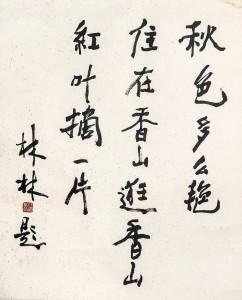 秋色多么艳
住在香山逛香山
紅叶摘一片
林林题